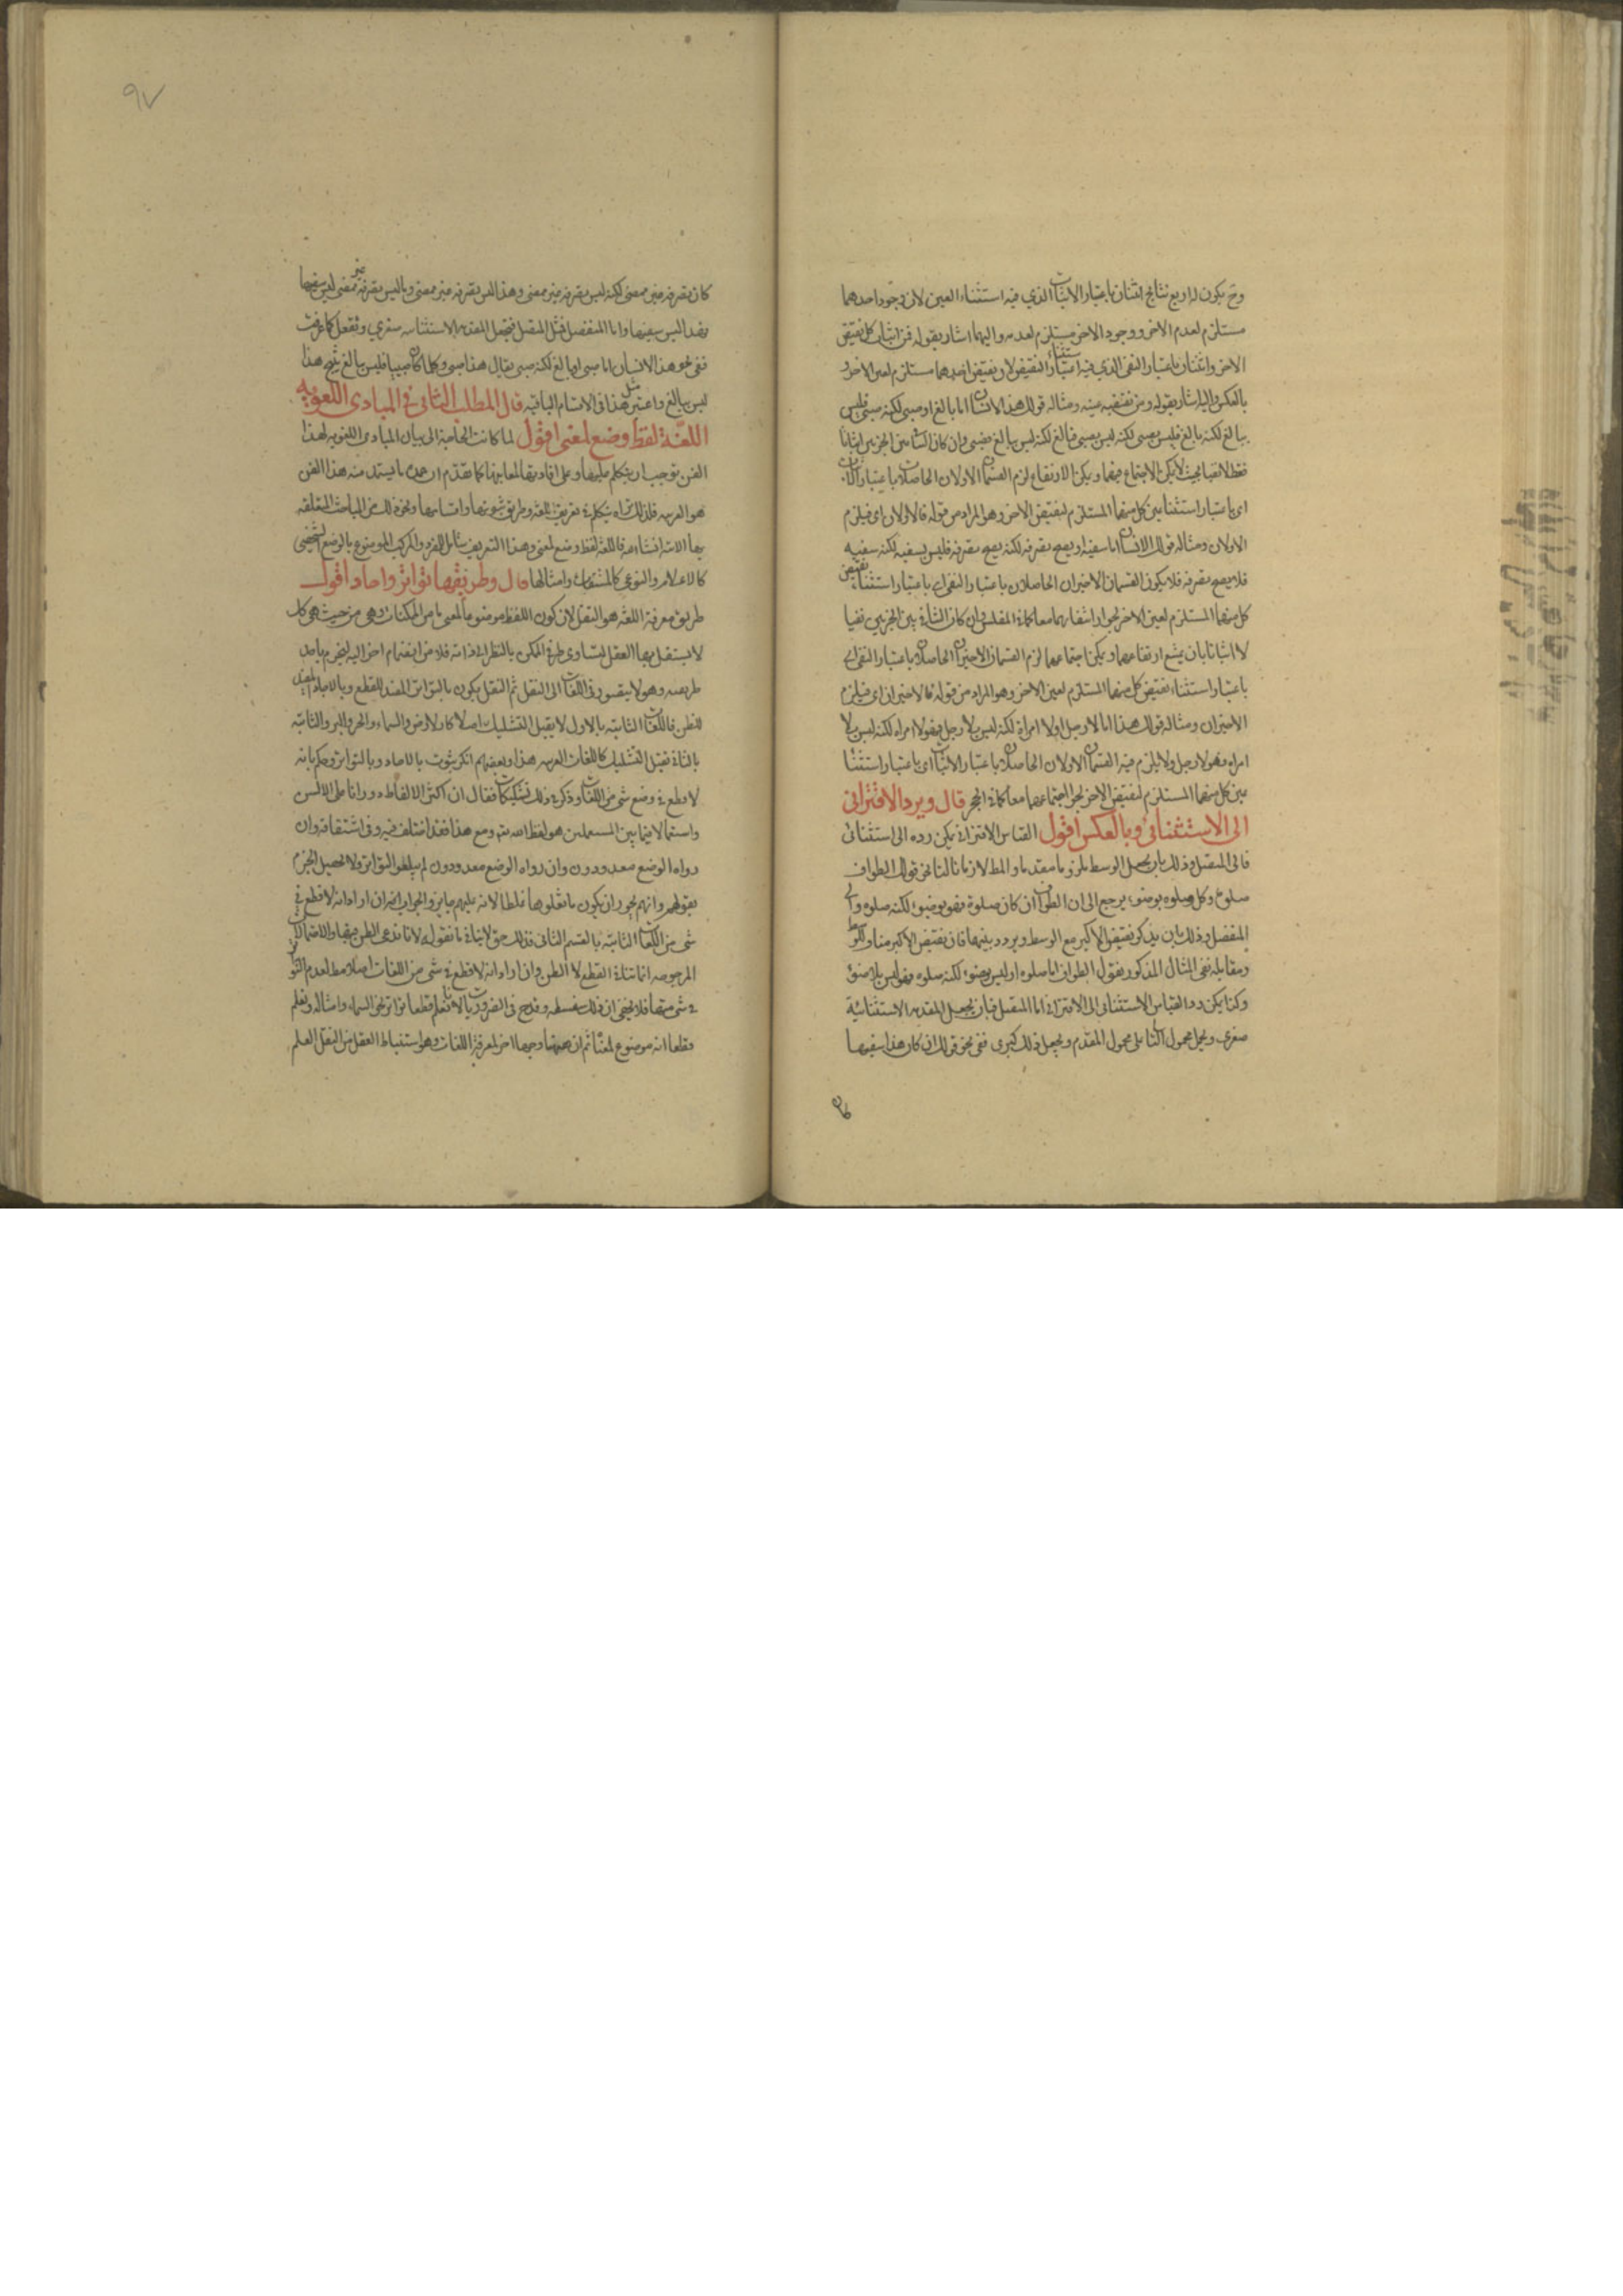 وح يكون له اربع نتايج اثنتان باعتبار الاثبات الذي فيه استثناء العين لان وجود احدهما
مستلزم لعدم الاخر ووجود الاخر مستلزم لعدمه واليهما اشار بقوله فمن اثبات كل نقيض
الاخر واثنتان باعتبار النفي الذي فيه استثناء النقيض لان نقيض احدهما مستلزم لعين الاخر و
بالعكس واليه اشار بقوله ومن نقيضه عينه ومثاله قولك هذا الانسان اما بالغ او صبي لكنه صبي فليس
ببالغ لكنه بالغ فليس بصبي لكنه ليس بصبي فبالغ لكنه ليس ببالغ فصبي وان كان التنافي بين الجزءين اثباتا
فقط لا نفيا بحيث لا يمكن الاجتماع بينهما ويمكن الارتفاع لزم القسمان الاولان الحاصلان باعتبار الاثبات
اي باعتبار استثناء عين كل منهما المستلزم لنقيض الاخر وهو المراد من قوله فالاولان اي فيلزم
الاولان ومثاله قولك الانسان اما سفيه او يصح تصرفه لكنه يصح تصرفه فليس بسفيه لكنه سفيه
فلا يصح تصرفه فلا يكون القسمان الاخيران الحاصلان باعتبار النفي اي باعتبار استثناء نقيض
كل منهما المستلزم لعين الاخر لجواز انتفائهما معا كما في المفلس وان كان التنافي بين الجزءين نفيا
لا اثباتا بان يمتنع ارتفاعهما ويمكن اجتماعهما لزم القسمان الاخيران الحاصلان باعتبار النفي اي
باعتبار استثناء نقيض كل منهما المستلزم لعين الاخر وهو المراد من قوله فالاخيران اي فيلزم
الاخيران ومثاله قولك هذا اما لا رجل او لا امراة لكنه ليس بلا رجل فهو لا امراه لكنه ليس بلا
امراه فهو لا رجل ولا يلزم فيه القسمان الاولان الحاصلان باعتبار الاثبات اي باعتبار استثناء
عين كل منهما المستلزم لنقيض الاخر لجواز اجتماعهما معا كما في الحجر قال ويرد الاقتراني
الى الاستثنائي وبالعكس اقول القياس الاقتراني يمكن رده الى استثنائي
فالى المتصل وذلك بان يجعل الوسط ملزوما مقدما والمط لازما تاليا نحو قولك الطواف
صلوة وكل صلوه بوضوء يرجع الى ان الطواف ان كان صلوة فهو بوضوء لكنه صلوه والى
المنفصل وذلك بان يذكر نقيض الاكبر مع الوسط ويردد بينهما فان نقيض الاكبر مناف للوسط
ومقابله ففي المثال المذكور يقول الطواف اما صلوه او ليس بوضوء لكنه صلوه فهو ليس بلا وضوء
وكذا يمكن رد القياس الاستثنائي الى الاقتراني اما المتصل فبان يجعل المقدمه الاستثنائية
صغرى ويحمل محمول التالي على محمول المقدم ويجعل ذلك كبرى ففي نحو قولك ان كان هذا سفيها
كان
٩٧
كان تصرفه غير ممضى لكنه ليس تصرفه غير ممضى وهذا ليس تصرفه غير ممضى وما ليس تصرفه غير ممضى ليس سفيها
فهذا ليس سفيها واما المنفصل فمثل المتصل فيجعل المقدمه الاستثنائيه صغرى وتفعل كما عرفت
ففي نحو هذا الانسان اما صبي او بالغ لكنه صبي يقال هذا صبي وكلما كان صبيا فليس ببالغ ينتج هذا
ليس ببالغ واعتبر مثل هذا في الاقسام الباقيه قال المطلب الثاني في المبادى اللغويه
اللغة لفظ وضع لمعنى اقول لما كانت الحاجة الى بيان المبادى اللغويه لهذا
الفن توجب ان يتكلم عليها وعلى افادتها لمعانيها كما تقدم ان احد ما يستمد منه هذا الفن
هو العربيه فلذلك تراه يتكلم في تعريف اللغه وطريق ثبوتها واقسامها ونحو ذلك من المباحث المتعلقه
بها الاتيه انشاءالله فاللغة لفظ وضع لمعنى وهذا التعريف شامل للمفرد والمركب الموضوع بالوضع الشخصي
كالاعلام والنوعي كالمشتقات وامثالها قال وطريقها تواتر واحاد اقول
طريق معرفة اللغه هو النقل لان كون اللفظ موضوعا لمعنى ما من الممكنات وهي من حيث هي كل
لا يستقل بها العقل لتساوي طرفي الممكن بالنظر الى ذاته فلا من انضمام اخر اليه ليجزم باحد
طرفيه وهو لا يتصور في اللغات الى النقل ثم النقل يكون بالتواتر المفيد للقطع وبالاحاد المفيد
للظن فاللغات الثابته بالاول لا يقبل التشكيك اصلا كالارض والسماء والحر والبرد والثابته
بالثاني تقبل التشكيك كاللغات العربيه هذا وبعضهم انكر ثبوت بالاحاد وبالتواتر وحكم بانه
لا قطع في وضع شي من اللغات وذكر في ذلك تشكيكات فقال ان اكثر الالفاظ دورانا على الالسن
واستعمالا فيما بين المستعملين هو لفظ الله تع ومع هذا فقد اختلف فيه وفي اشتقاقه وان
رواه الوضع معدودون وان رواه الوضع معدودون لم يبلغوا التواتر ولا يحصل الجزم
بقولهم وانهم يجوز ان يكون ما نقلوها غلطا لانه عليهم جايز والجواب انه ان اراد انه لا قطع في
شي من اللغات الثابته بالقسم الثاني فذلك حق لا ينافي ما نقوله لانا ندعي الظن فيها والاحتمالات
المرجوحه انما تنافي القطع لا الظن وان اراد انه لا قطع في شي من اللغات اصلا مط لعدم التواتر
في شي منها فلا يخفى ان ذلك سفسطه وقدح في الضروريات لانا نعلم قطعا تواتر نحو السماء وامثاله ونعلم
قطعا انه موضوع لمعناه ثم ان ههنا وجها اخر لمعرفة اللغات وهو استنباط العقل من النقل العلم